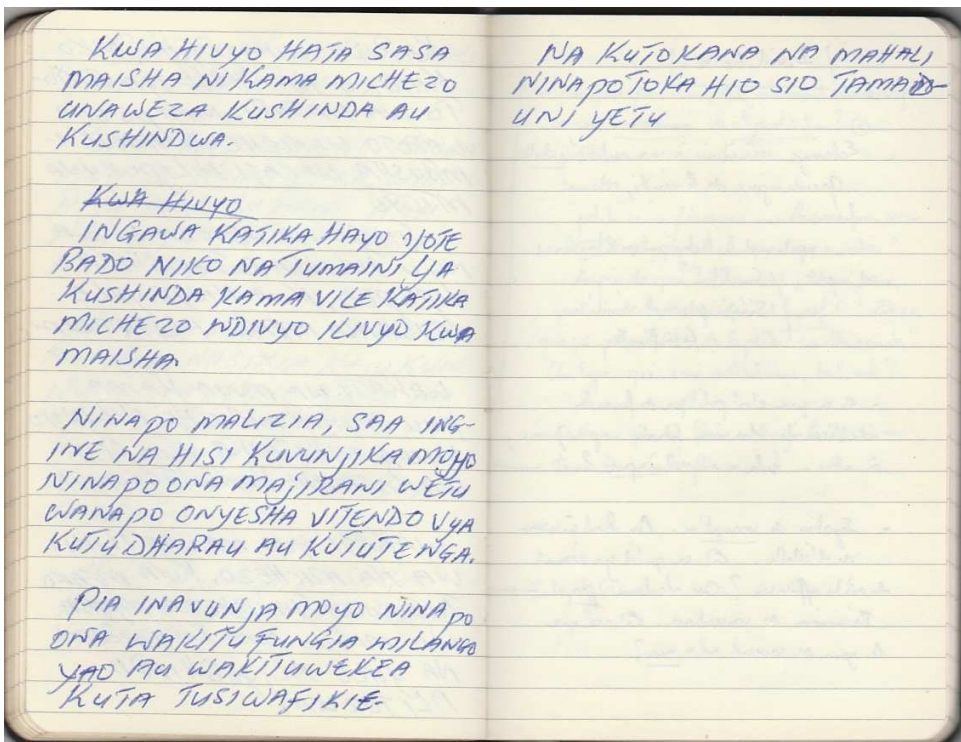 KWA HIVYO HATA SASA
MAISHA NI KAMA MICHEZO
UNAWEZA KUSHINDA AU
KUSHINDWA.
KWA HIVYO
INGAWA KATIKA HAYO YOTE
BADO NIKO NA TUMAINI YA
KUSHINDA KAMA VILE KATIKA
MICHEZO NDIVYO ILIVYO KWA
MAISHA.
NINAPO MALIZIA, SAA ING-
INE NA HISI KUVUNJIKA MOYO
NINAPOONA MAJIRANI WETU
WANAPO ONYESHA VITENDO VYA
KUTUDHARAU AU KUTUTENGA.
PIA INAVUNJA MOYO NINAPO
ONA WAKITUFUNGIA MILANGO
YAO AU WAKITUWEKEA
KUTA TUSIWAFIKIE.
NA KUTOKANA NA MAHALI
NINAPOTOKA HIO SIO TAMAD-
UNI YETU